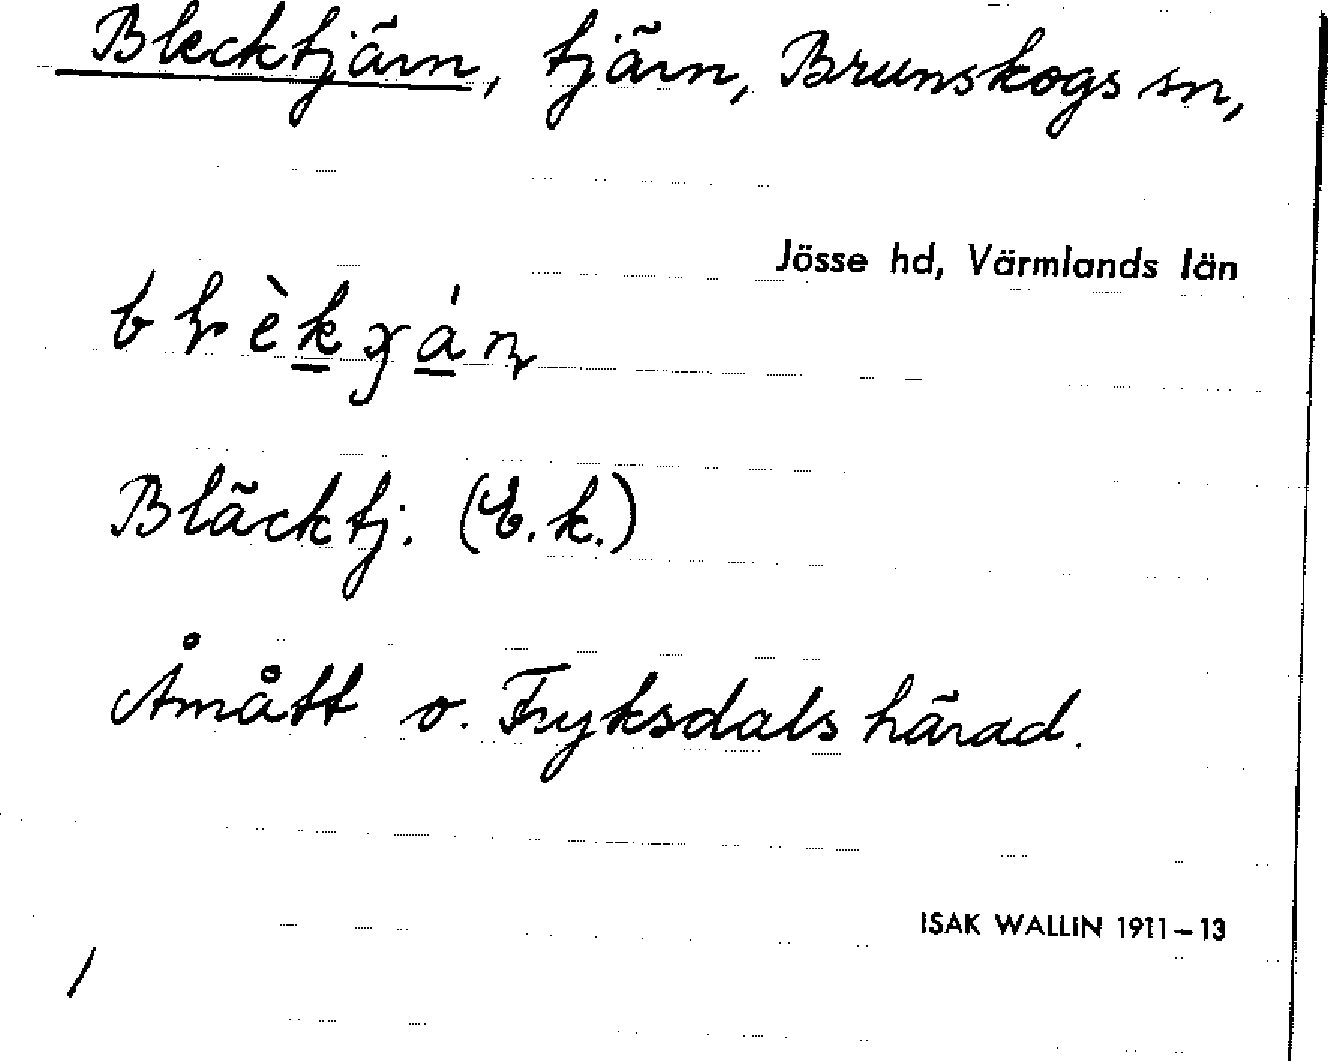 Blecktjärn, tjärn, Brunskogs sn,
Jösse hd, Värmlands län
Bläcktj. (E.k.)
Åmått o. Fryksdals härad.
ISAK WALLIN 1911–13
/